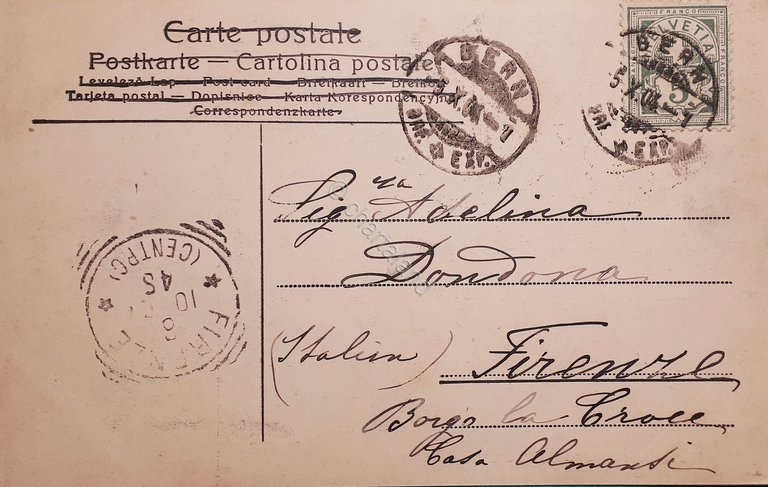 Carte postale
Postkarte — Cartolina postale
Levelező-Lap — Post card — Briefkaart — Brefkort
Tarjeta postal — Dopisnice — Karta Korespondencyjna
Correspondenzkarte
BERN
5.X.04.—7
BRF. EXP.
FRANCO
HELVETIA
5
BERN
5.X.04.—7
BRF. EXP.
FIRENZE
(CENTRO)
10 4S
6
Sig.ra Adelina
Dondona
(Italien) Firenze
Borgo la Croce,
Casa Almansi